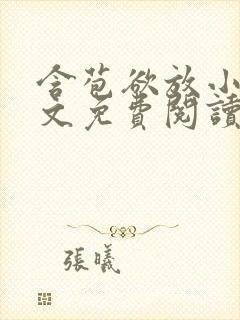 含苞欲放小
文免費閱讀
張曦